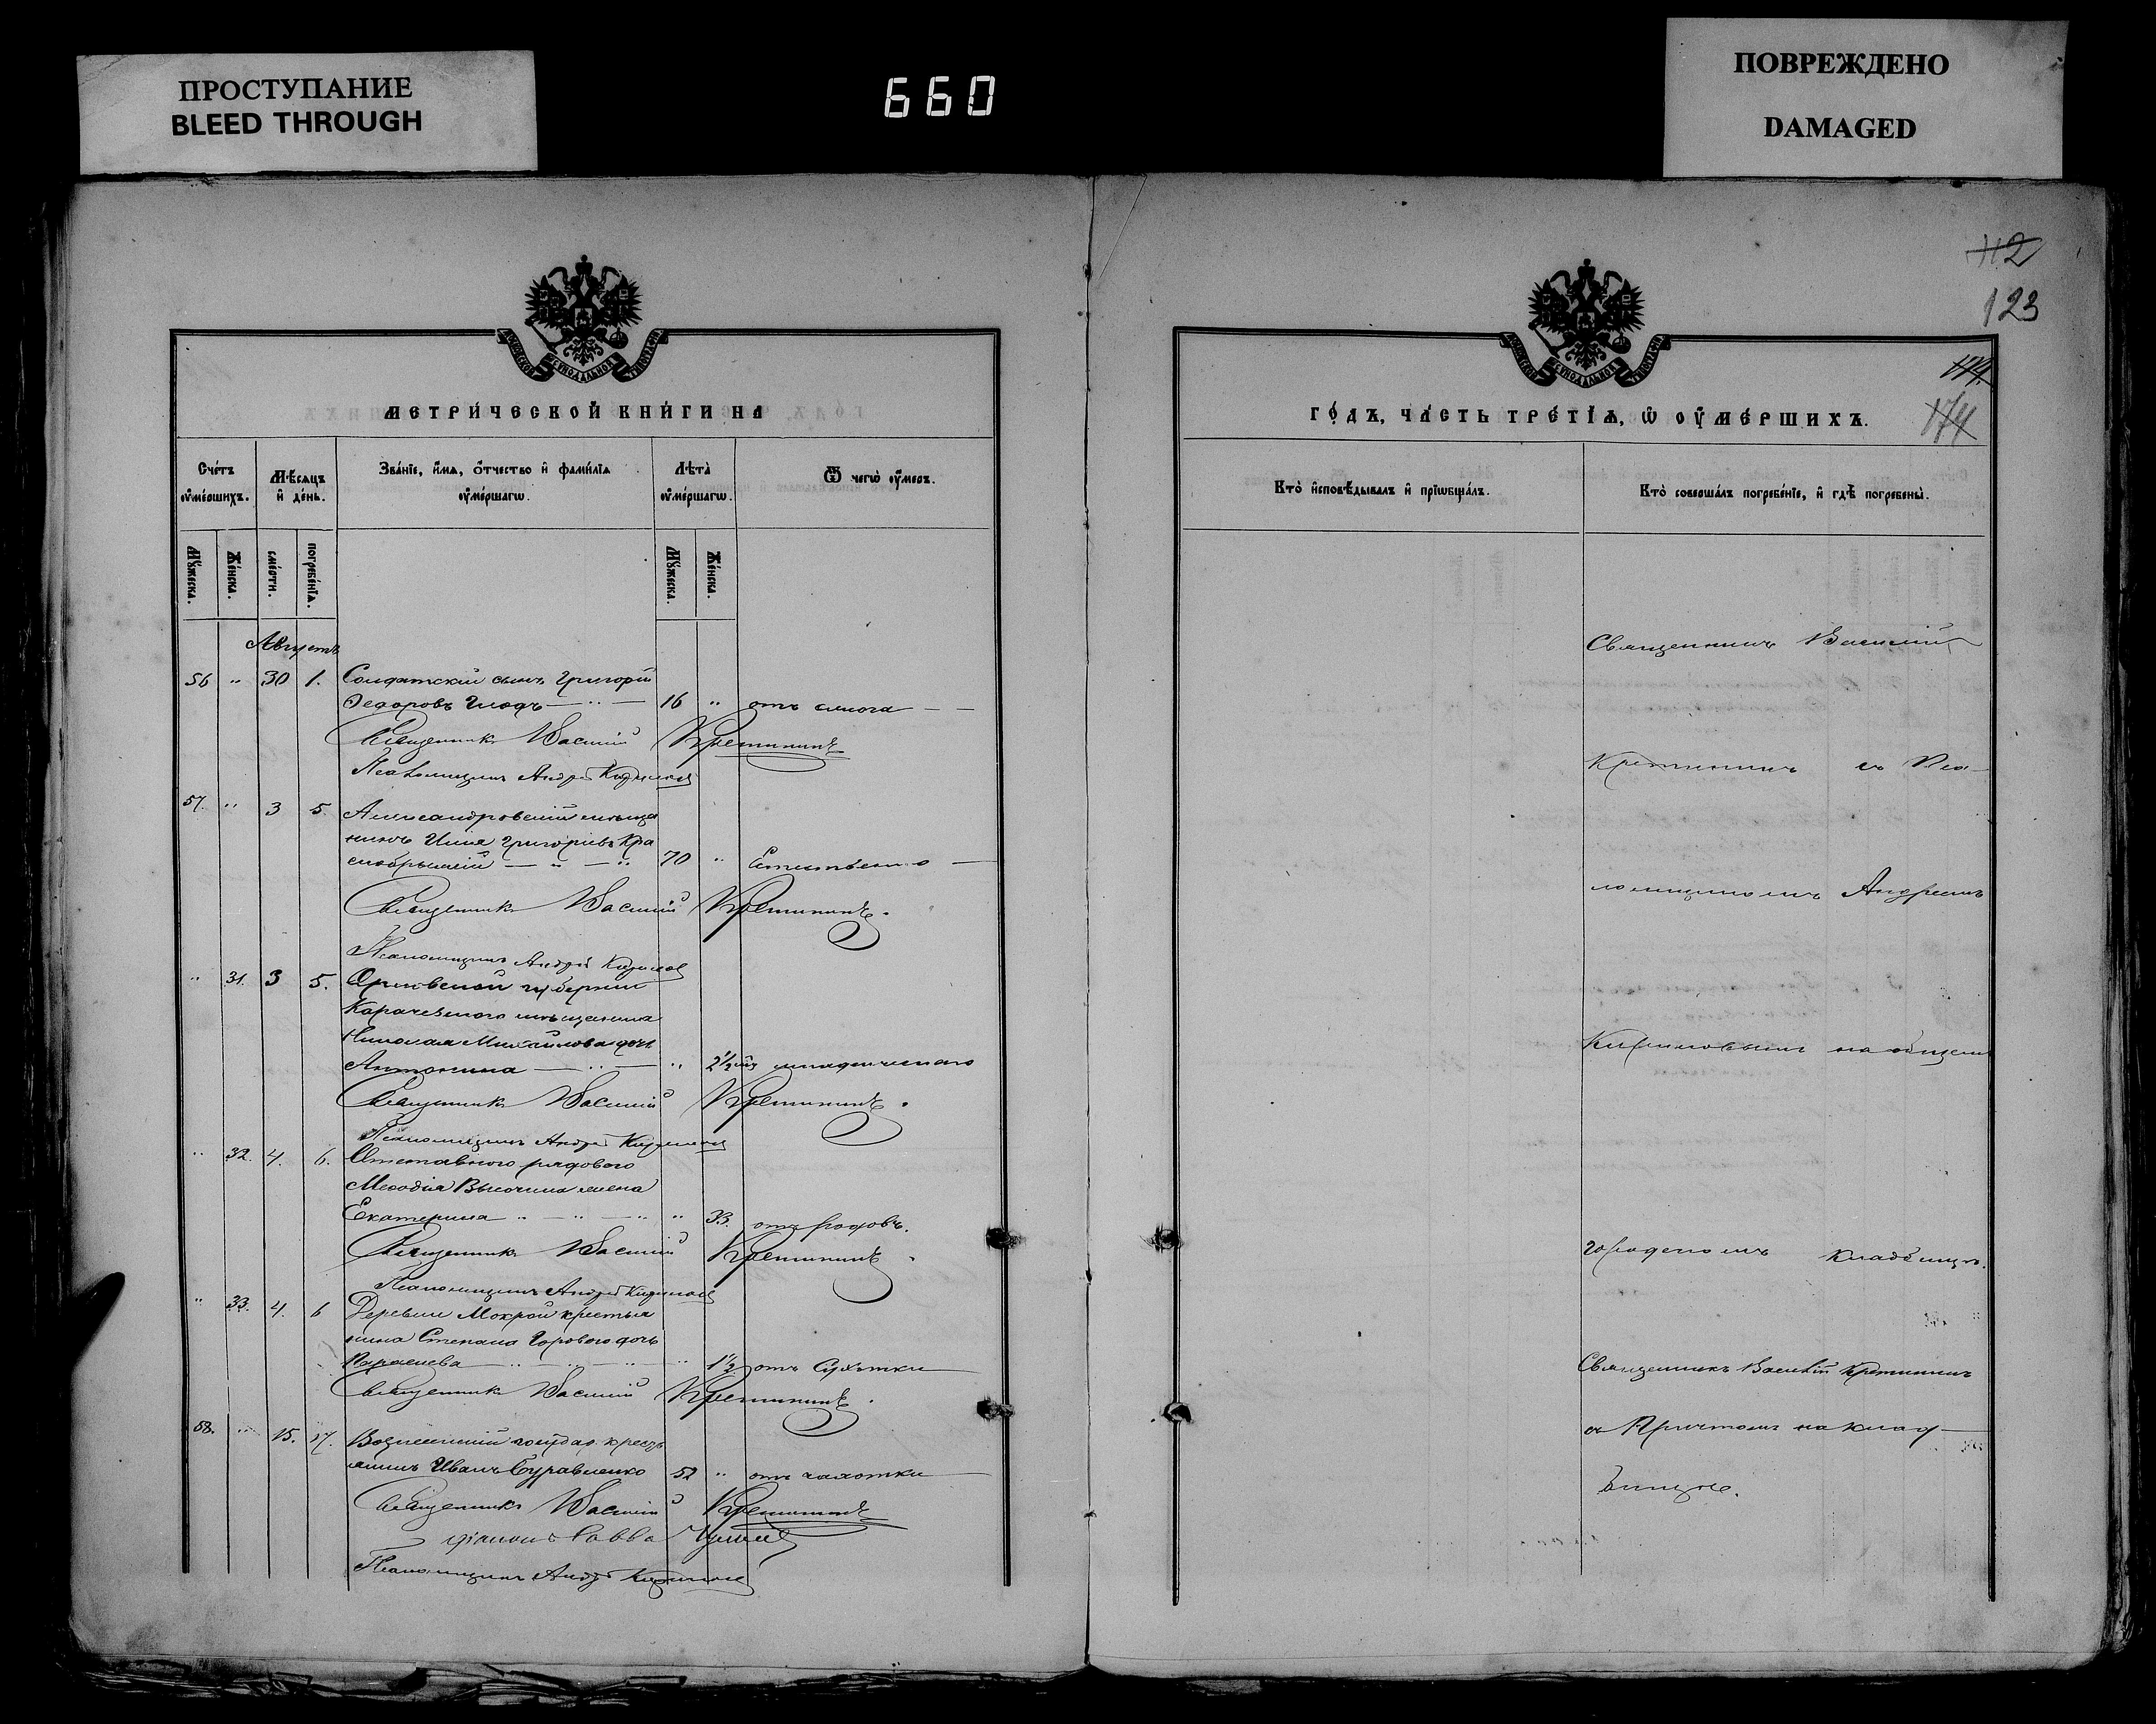 ПРОСТУПАНИЕ
BLEED THROUGH
660
ПОВРЕЖДЕНО
DAMAGED
МЕТРИ́ЧЕСКОЙ КНИ́ГИ НА
Сче́тъ ᲂу҆ме́ршихъ.
Мѣ́сяцъ и҆ де́нь.
Зва́нїе, и҆́мѧ, ѻ҆́тчество и҆ фами́лїѧ ᲂу҆ме́ршагѡ.
Лѣ́та ᲂу҆ме́ршагѡ.
Ѿ чегѡ̀ ᲂу҆́меръ.
Мꙋ́жеска.
Же́нска.
сме́рти.
погребе́нїѧ.
Мꙋ́жеска.
Же́нска.
Августъ
56 " 30 1. Солдатскій сынъ Григорій
Ѳедоровъ Гладъ 16 "
Священникъ Василій Кретининъ
Псаломщикъ Андрей Кириловъ
57. " 3 5. Александровскій мѣща
нинъ Григоріевъ Кра
70 " Естественно
Священникъ Василій Кретининъ.
Псаломщикъ Андрей Кириловъ
" 31. 3 5. Орловской губерніи
Карачевского мѣщанина
Николая Михайлова дочь
Антонина " 2½ младенческаго
Священникъ Василій Кретининъ.
Псаломщикъ Андрей Кириловъ
" 32. 4. 6. Отставного рядового
Меѳодія Высочина жена
Екатерина " 33. отъ родовъ.
Священникъ Василій Кретининъ.
Псаломщикъ Андрей Кириловъ
" 33. 4. 6 Деревни Мокрой крестья
нина Степана Горового дочь
Параскева " 1½ отъ Сухотки
Священникъ Василій Кретининъ.
58. " 15. 17. Вознесенскій государ. кресть
янинъ Иванъ Журавленко 52 " отъ чахотки
Священникъ Василій Кретининъ
діаконъ Савва
Псаломщикъ Андрей Кириловъ
112
123
174
ГО́ДЪ, ЧА́СТЬ ТРЕ́ТЇѦ, Ѡ҆ ОУ҆МЕ́РШИХЪ.
Кто̀ и҆сповѣ́дывалъ и҆ прїѡбща́лъ.
Кто̀ соверша́лъ погребе́нїе, и҆ гдѣ̀ погребены̀.
Священникъ Василій
Кретининъ съ Пса
ломщикомъ Андреемъ
Кириловымъ на общем
городскомъ кладбищѣ.
Священникъ Василій Кретининъ
съ Причтомъ на клад
бищѣ.